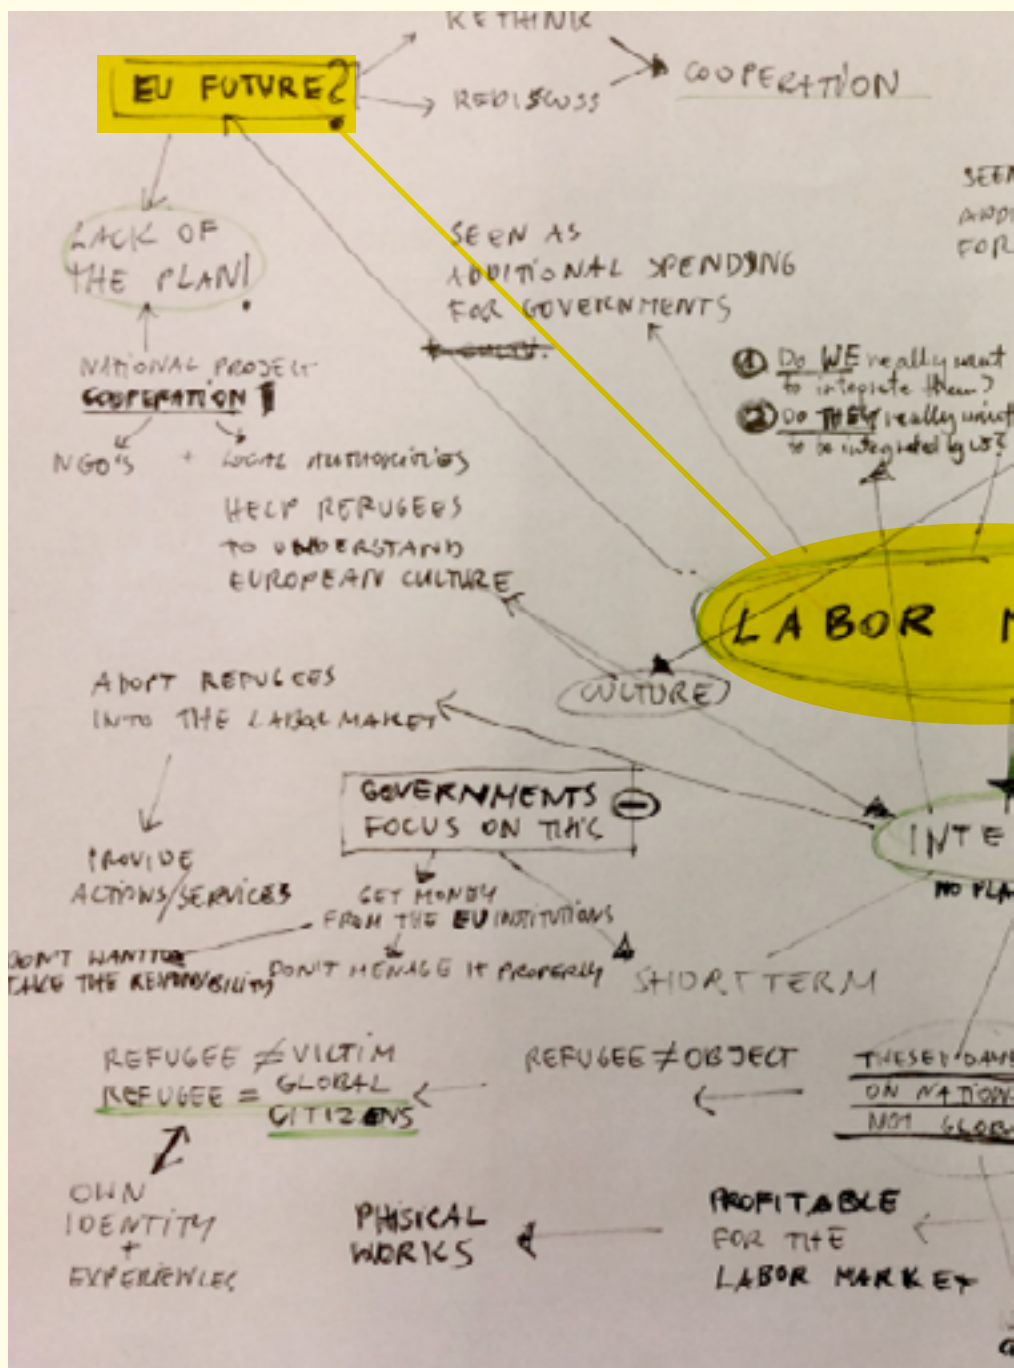 RETHINK
EU FUTURE?
REDISCUSS
COOPERATION
LACK OF
THE PLAN!
SEEN AS
ADDITIONAL SPENDING
FOR GOVERNMENTS
SEEN
FOR
NATIONAL PROJECT
COOPERATION
NGO'S + LOCAL AUTHORITIES
HELP REFUGEES
TO UNDERSTAND
EUROPEAN CULTURE
1 Do WE really want
to integrate them?
2 Do THEY really want
to be integrated by us?
LABOR M
CULTURE
ADOPT REFUGEES
INTO THE LABOR MARKET
GOVERNMENTS
FOCUS ON THIS
INTE
NO PLA
PROVIDE
ACTIONS/SERVICES
GET MONEY
FROM THE EU INSTITUTIONS
DON'T WANT TO
TAKE THE RESPONSIBILITY
DON'T MENAGE IT PROPERLY
SHORT TERM
REFUGEE ≠ VICTIM
REFUGEE = GLOBAL
CITIZENS
REFUGEE ≠ OBJECT
ON NATION
NOT GLOBA
OWN
IDENTITY
+
EXPERIENCES
PHISICAL
WORKS
PROFITABLE
FOR THE
LABOR MARKET